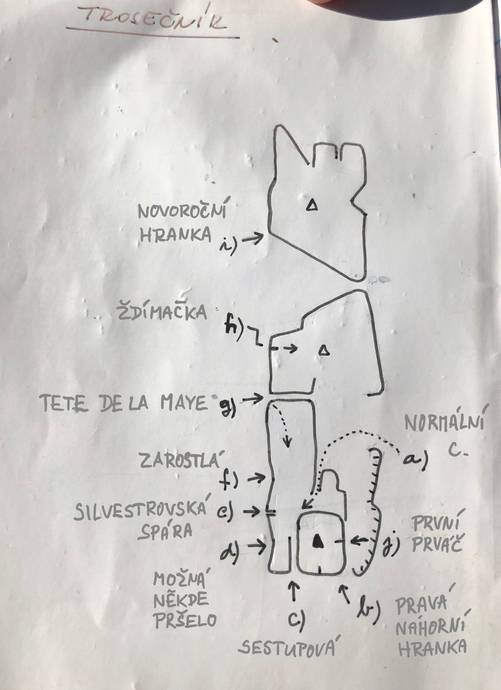 TROSEČNÍK
NOVOROČNÍ
HRANKA i)
ŽDÍMAČKA h)
TETE DE LA MAYE g)
NORMÁLNÍ
C. a)
ZAROSTLÁ f)
SILVESTROVSKÁ e)
SPÁRA
d)
MOŽNÁ
NĚKDE
PRŠELO
c)
SESTUPOVÁ
j) PRVNÍ
PRVÁČ
b) PRAVÁ
NÁHORNÍ
HRANKA